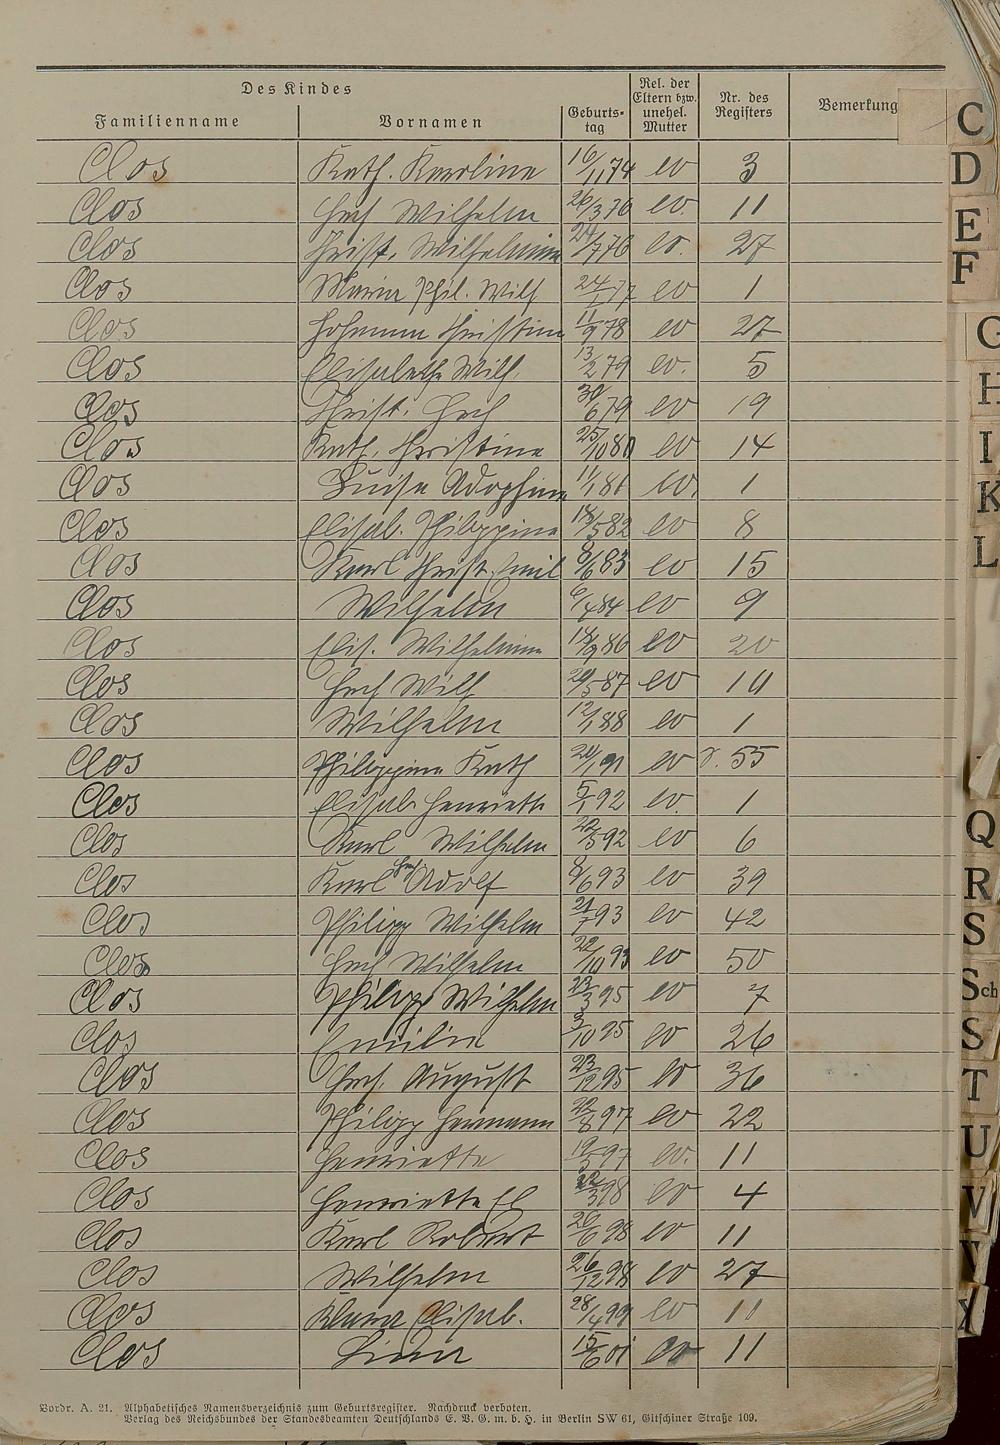 Des Kindes
Familienname Vornamen Geburts-tag Rel. der Eltern bzw. unehel. Mutter Nr. des Registers Bemerkung
Clos Kath. Karoline 16/11 74 ev 3
Clos Wilhelm 26/3 76 ev. 11
Clos Christ. Wilhelmine 76 ev. 27
Clos Maria Phil. Wilh 24/1 77 ev 1
Clos Johanna Christine 11/9 78 ev 27
Clos Elisabetha Wilh. 13/2 79 ev. 5
Clos Christ. 30/6 79 ev 19
Clos Kath. Christine 25/10 80 ev 14
Clos Luise 11/1 81 ev. 1
Clos Elisab. Philippine 18/5 82 ev 8
Clos Karl Christ. Emil 8/6 83 ev 15
Clos Wilhelm 6/4 84 ev 9
Clos Elis. Wilhelmine 18/9 86 ev 20
Clos Wilh 87 ev
Clos Wilhelm 12/1 88 ev 1
Clos Philippine Kath ev 55
Clos Elisab. Henriette 5/1 92 ev. 1
Clos Karl Wilhelm 92 ev 6
Clos Karl Adolf 8/6 93 ev 39
Clos Philipp Wilhelm 21/7 93 ev 42
Clos Wilhelm 22/10 93 ev 50
Clos Philipp Wilhelm 23/3 95 ev 7
Clos Emilie 3/10 95 ev 26
Clos August 23/12 95 ev 36
Clos Philipp Hermann 22/8 97 ev 22
Clos Henriette 97 ev. 11
Clos Henriette El 22/3 98 ev 4
Clos Karl Robert 20/6 98 ev 11
Clos Wilhelm 26/12 98 ev 27
Clos Klara Elisab. 28/4 99 ev 11
Clos Lina 15/6 01 ev 11
Vordr. A. 21. Alphabetisches Namensverzeichnis zum Geburtsregister. Nachdruck verboten.
Verlag des Reichsbundes der Standesbeamten Deutschlands E. V. G. m. b. H. in Berlin SW 61, Gitschiner Straße 109.
C
D
E
F
G
H
I
K
L
Q
R
S
Sch
S
T
U
V